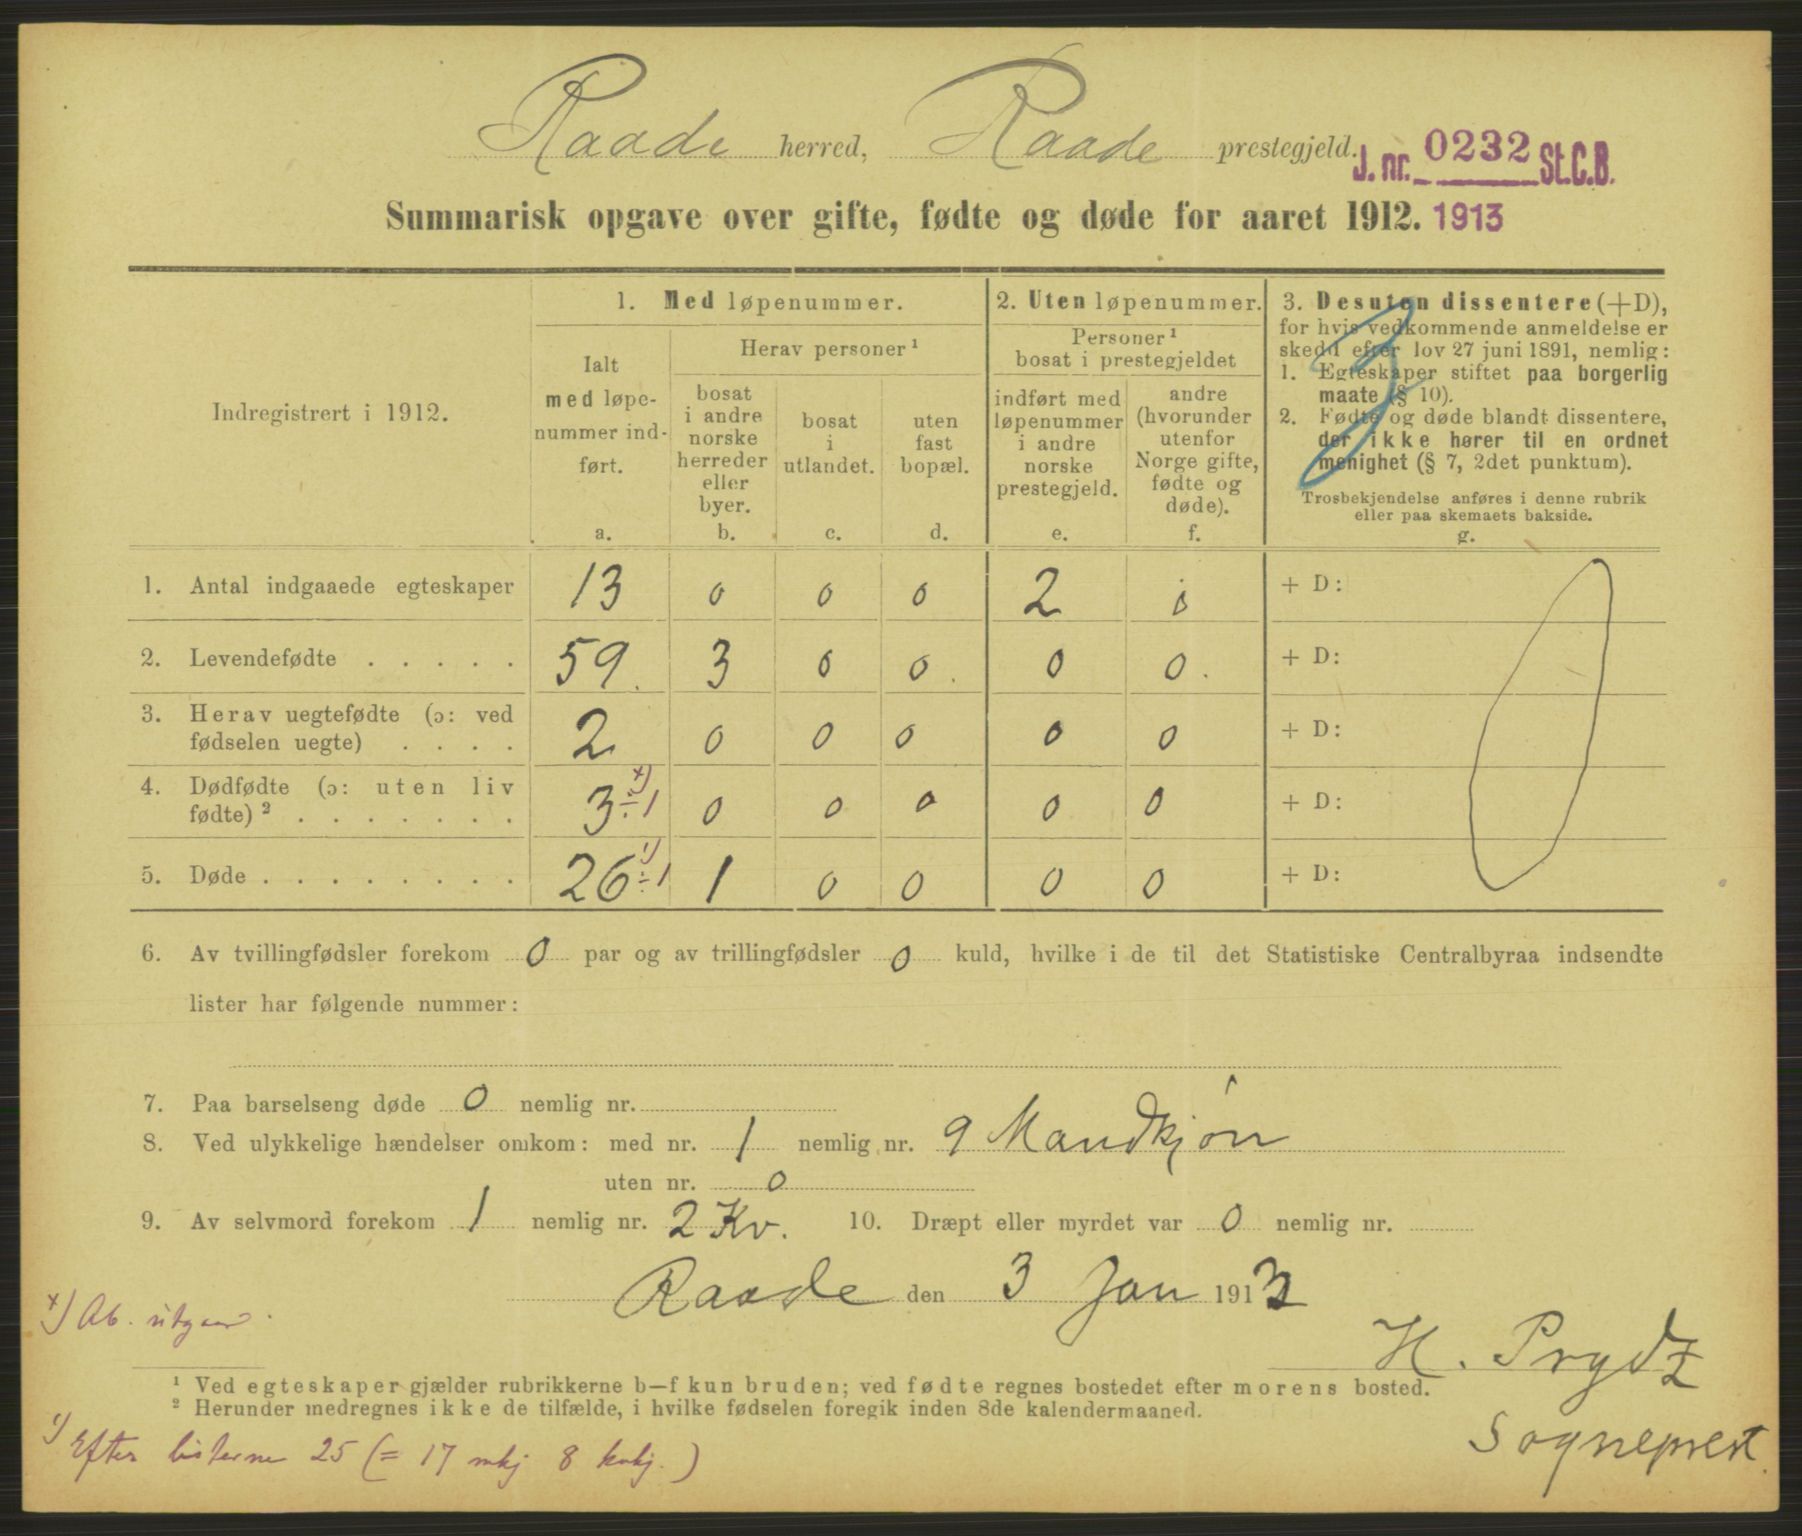 Raade herred, Raade prestegjeld.
J. nr. 0232 St.C.B.
Summarisk opgave over gifte, fødte og døde for aaret 1912. 1913
Indregistrert i 1912.
1. Med løpenummer.
Ialt med løpe-
nummer ind-
ført.
a.
Herav personer ¹
bosat
i andre
norske
herreder
eller
byer.
b.
bosat
i
utlandet.
c.
uten
fast
bopæl.
d.
2. Uten løpenummer.
Personer ¹
bosat i prestegjeldet
indført med
løpenummer
i andre
norske
prestegjeld.
e.
andre
(hvorunder
utenfor
Norge gifte,
fødte og
døde).
f.
3. Desuten dissentere (+D),
for hvis vedkommende anmeldelse er
skedd efter lov 27 juni 1891, nemlig:
1. Egteskaper stiftet paa borgerlig
maate (§ 10).
2. Fødte og døde blandt dissentere,
der ikke hører til en ordnet
menighet (§ 7, 2det punktum).
Trosbekjendelse anføres i denne rubrik
eller paa skemaets bakside.
g.
1. Antal indgaaede egteskaper 13 0 0 0 2 0 + D:
2. Levendefødte . . . . . 59. 3 0 0. 0 0. + D:
3. Herav uegtefødte (ɔ: ved
fødselen uegte) . . . . 2 0 0 0 0 0 + D:
4. Dødfødte (ɔ: uten liv
fødte) ² . . . . . . . 3 ÷1 ×) 0 0 0 0 0 + D:
5. Døde . . . . . . . . 26 ÷1 ¹) 1 0 0 0 0 + D:
6. Av tvillingfødsler forekom 0 par og av trillingfødsler 0 kuld, hvilke i de til det Statistiske Centralbyraa indsendte
lister har følgende nummer:
7. Paa barselseng døde 0 nemlig nr.
8. Ved ulykkelige hændelser omkom: med nr. 1 nemlig nr. 9 Mandkjøn
uten nr. 0
9. Av selvmord forekom 1 nemlig nr. 2 Kv. 10. Dræpt eller myrdet var 0 nemlig nr.
Raade den 3 Jan 1913
×) Ab. utgaar.
H. Prydz
¹ Ved egteskaper gjælder rubrikkerne b—f kun bruden; ved fødte regnes bostedet efter morens bosted.
² Herunder medregnes ikke de tilfælde, i hvilke fødselen foregik inden 8de kalendermaaned.
Sogneprest.
¹) Efter listerne 25 (= 17 mkj 8 kvkj.)